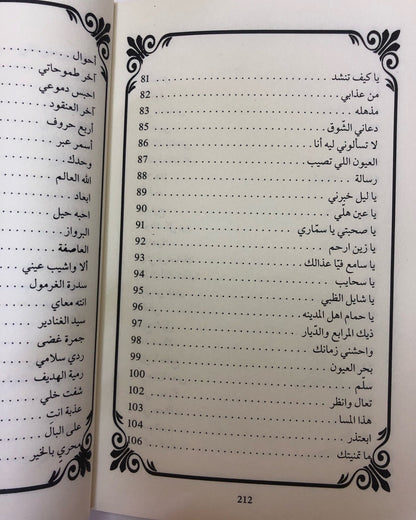 يا كيف تنشد 81
من عذابي 82
مذهله 83
دعاني الشّوق 85
لا تسألوني ليه أنا 86
العيون اللي تصيب 87
رسالة 88
يا ليل خبرني 89
يا عين هلّي 90
يا صحبتي يا سمّاري 91
يا زين ارحم 92
يا سامع فيّا عذالك 93
يا سحايب 94
يا شايل الظبي 95
يا حمام اهل المدينه 96
ذيك المرابع والدّيار 97
واحشني زمانك 98
بحر العيون 99
سلّم 100
تعال وانظر 102
هذا المسا 103
ابعتذر 104
ما تمنيتك 106
212
أحوال
آخر طموحاتي
احبس دموعي
آخر العنقود
أربع حروف
أسمر عبر
وحدك
الله العالم
ابعاد
احبه حيل
البرواز
العاصفة
ألا واشيب عيني
سدرة الغرمول
انته معاي
سيد الغنادير
جمرة غضى
ردي سلامي
رمية الهديف
شفت خلي
عذبة انت
على البال
بالخير